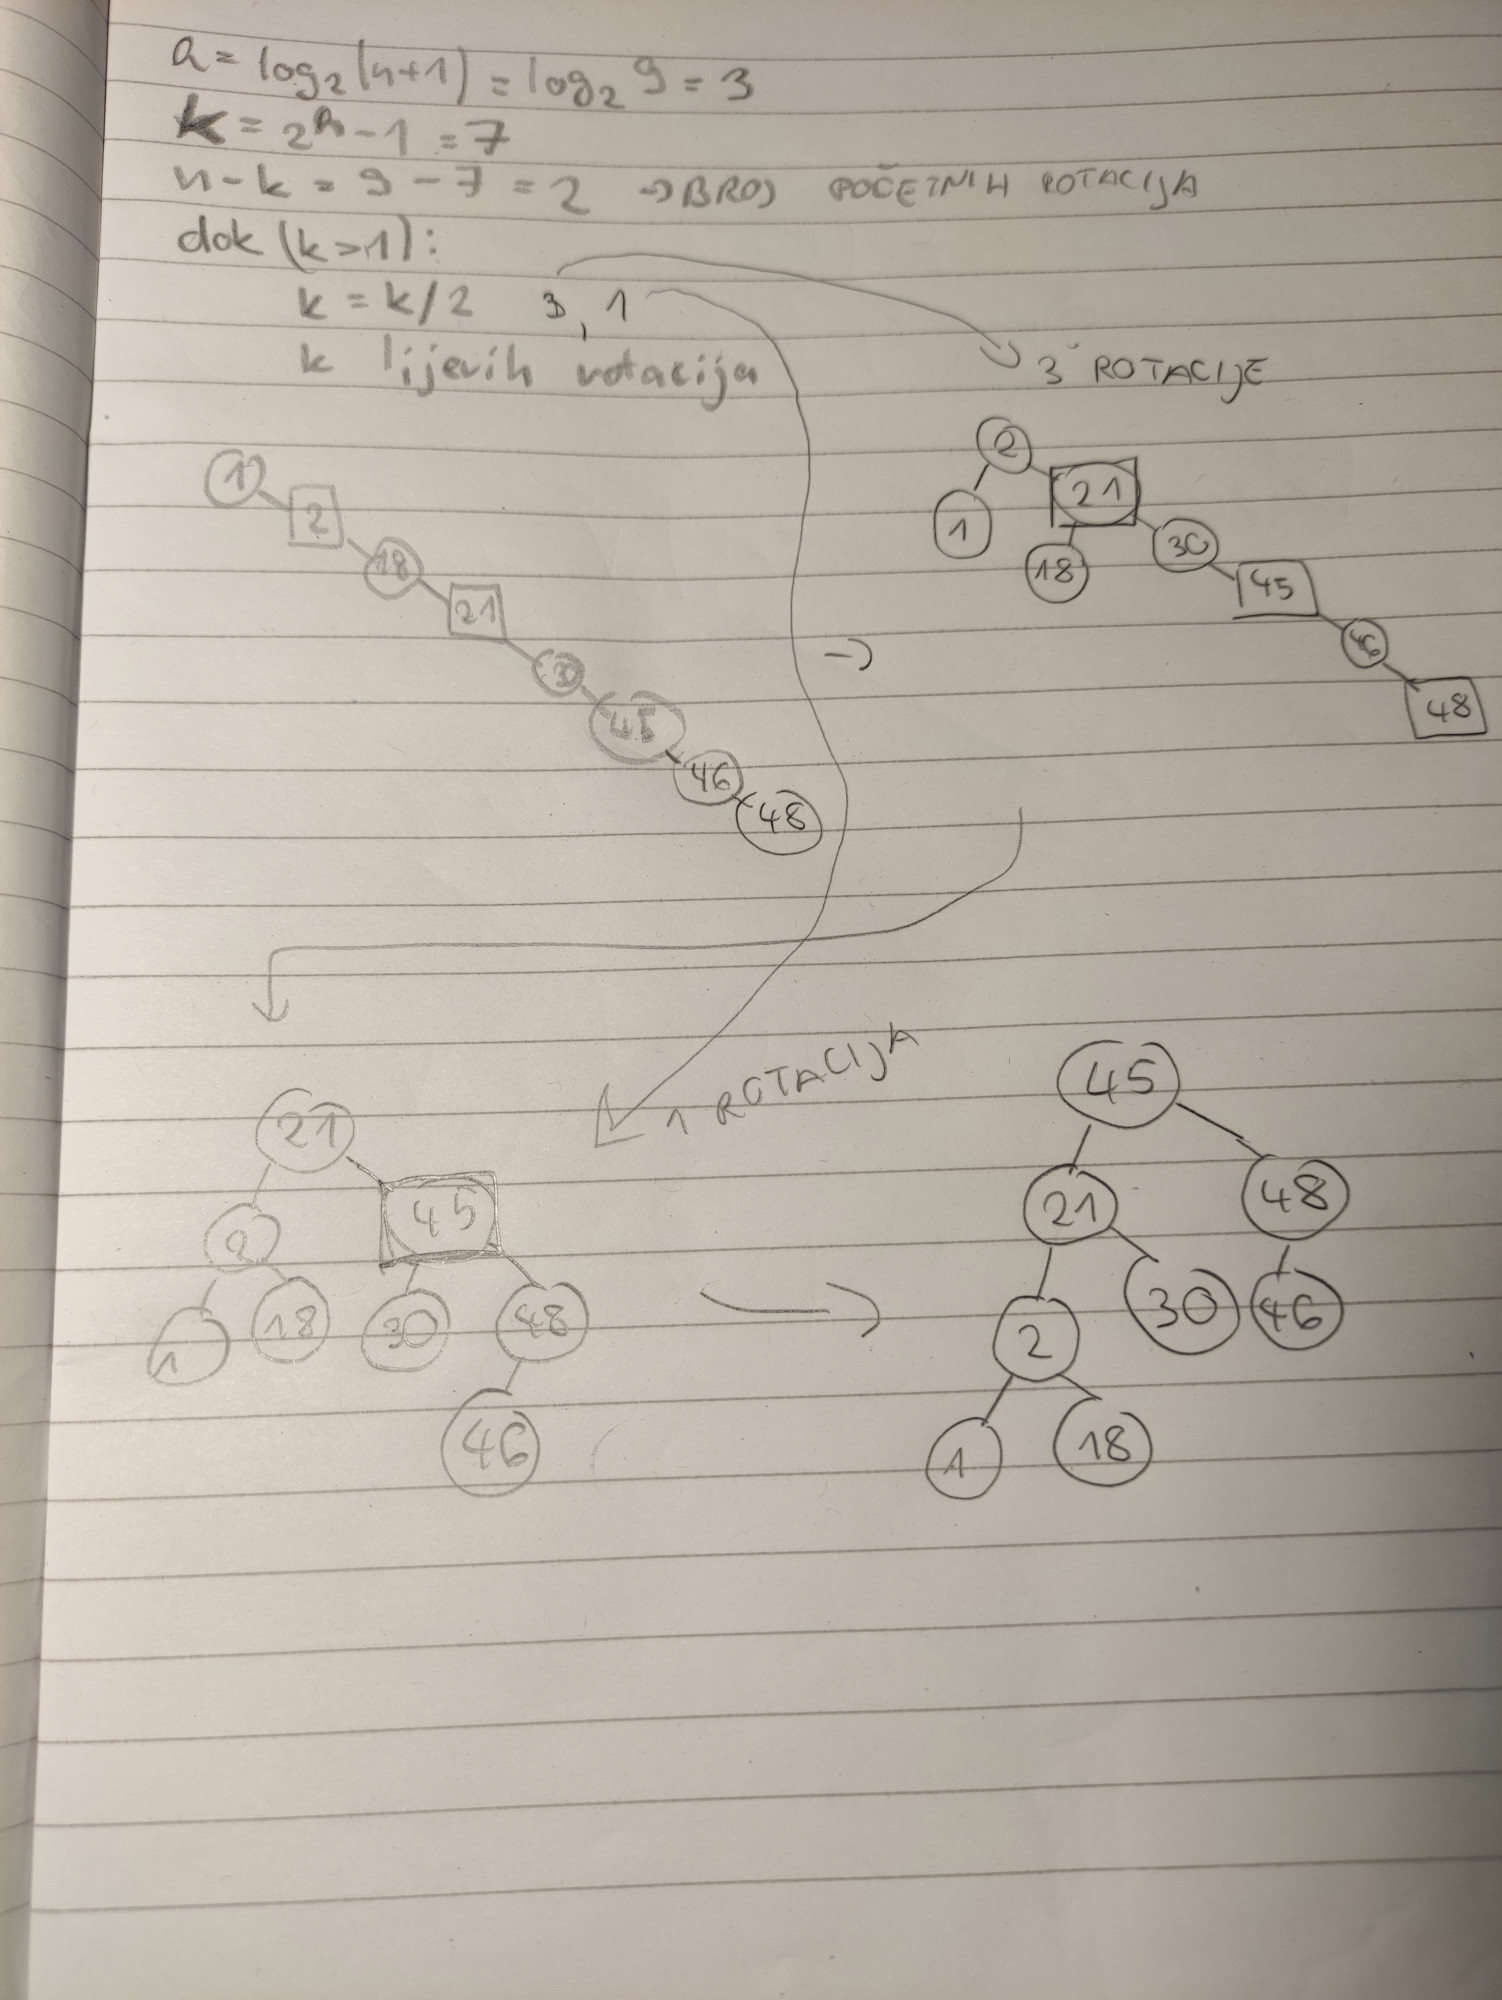 h = log₂(n+1) = log₂ 9 = 3
k = 2ʰ - 1 = 7
n - k = 9 - 7 = 2 → BROJ POČETNIH ROTACIJA
dok (k>1):
k = k/2 3, 1
k lijevih rotacija
3 ROTACIJE
1
2
18
21
30
45
46
48
2
1
21
18
30
45
46
48
1 ROTACIJA
21
2
45
1
18
30
48
46
45
21
48
2
30
46
1
18